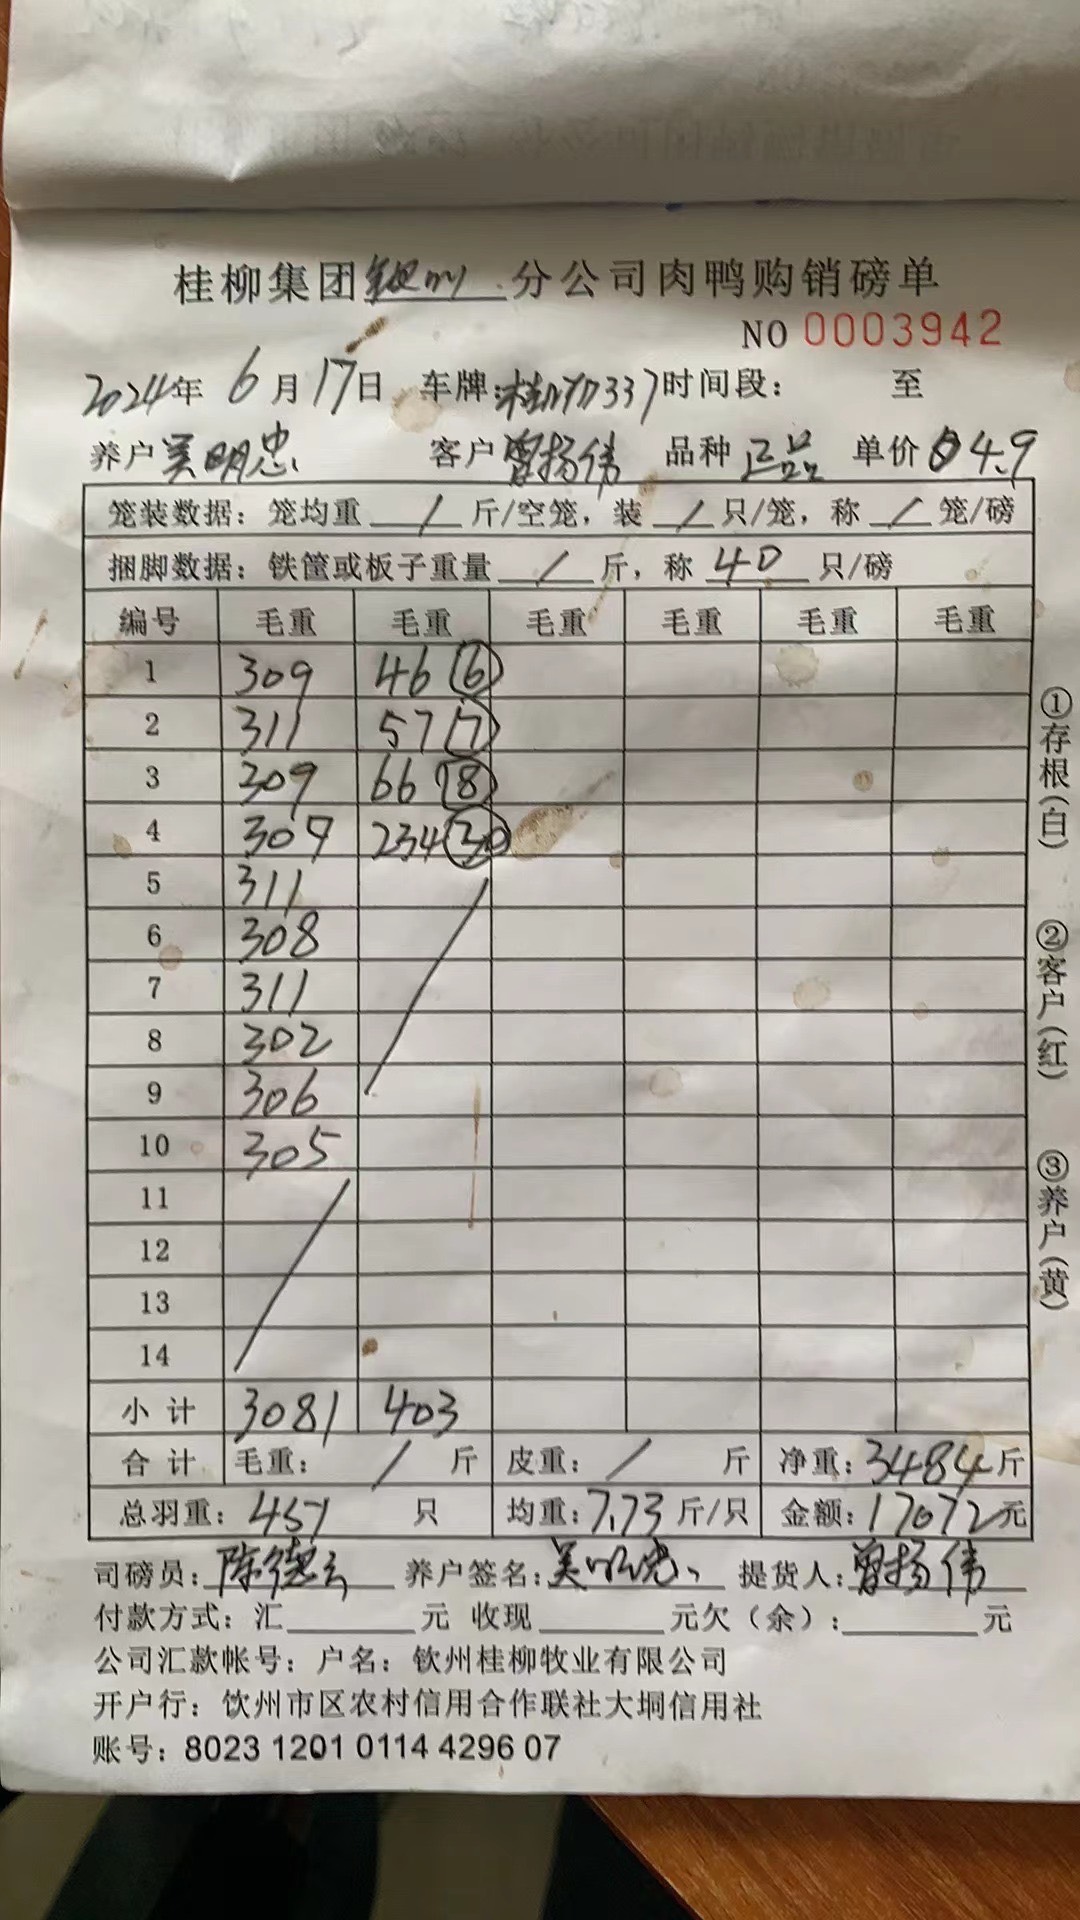 桂柳集团钦州分公司肉鸭购销磅单
NO 0003942
2024年 6月17日 车牌: 时间段: 至
养户 吴明忠 客户 曾扬伟 品种 正品 单价 4.9
笼装数据: 笼均重 / 斤/空笼, 装 / 只/笼, 称 / 笼/磅
捆脚数据: 铁筐或板子重量 / 斤, 称 40 只/磅
编号 毛重 毛重 毛重 毛重 毛重 毛重
1 309 46 6
2 311 57 7
3 309 66 8
4 309 234 30
5 311
6 308
7 311
8 302
9 306
10 305
11
12
13
14
小计 3081 403
合计 毛重: / 斤 皮重: / 斤 净重: 3484 斤
总羽重: 451 只 均重: 7.73 斤/只 金额: 17072 元
司磅员: 陈德云 养户签名: 吴明忠 提货人: 曾扬伟
付款方式: 汇 元 收现 元欠(余): 元
公司汇款帐号: 户名: 钦州桂柳牧业有限公司
开户行: 饮州市区农村信用合作联社大垌信用社
账号: 8023 1201 0114 4296 07
①存根(白)
②客户(红)
③养户(黄)